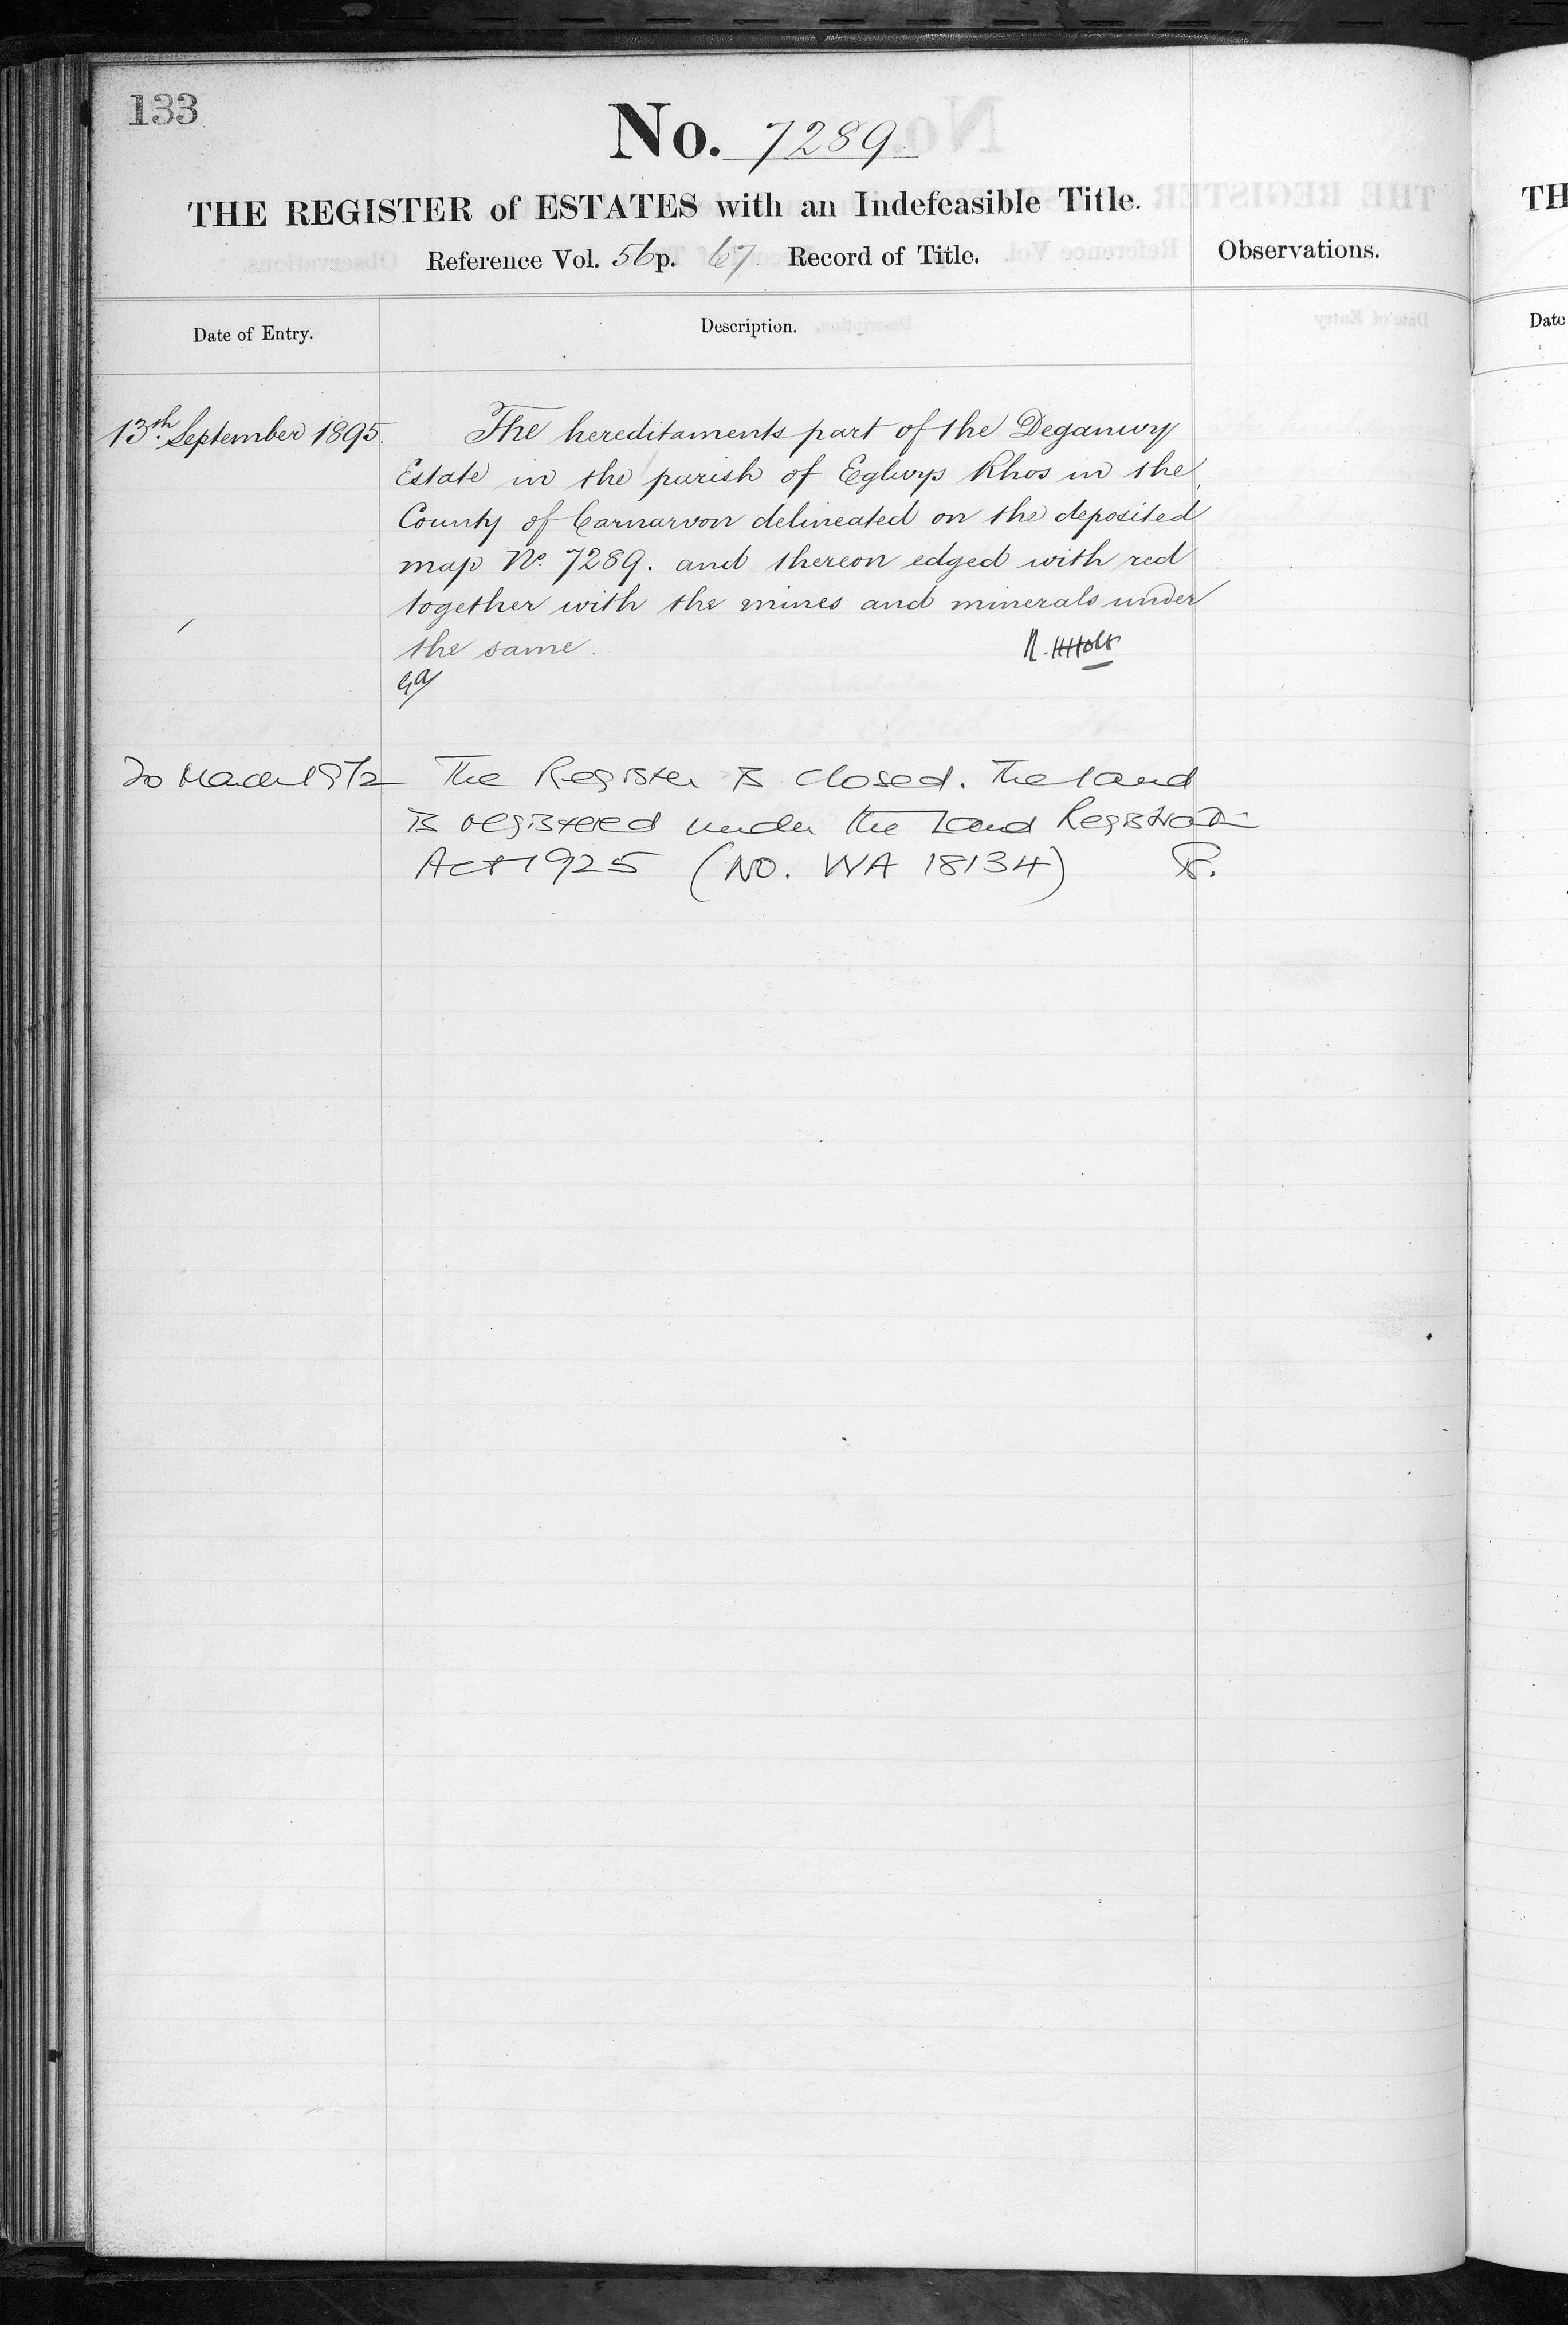 133
No. 7289.
THE REGISTER of ESTATES with an Indefeasible Title.
Reference Vol. 56 p. 67 Record of Title.
Observations.
Date of Entry.
Description.
13th. September 1895.
The hereditaments part of the Deganwy
Estate in the parish of Eglwys Rhos in the
County of Carnarvon delineated on the deposited
map No. 7289. and thereon edged with red
together with the mines and minerals under
the same.
R. HHolt
20 March 1972
The Register is closed. The land
is registered under the Land Registration
Act 1925 (NO. WA 18134)
TH
Date